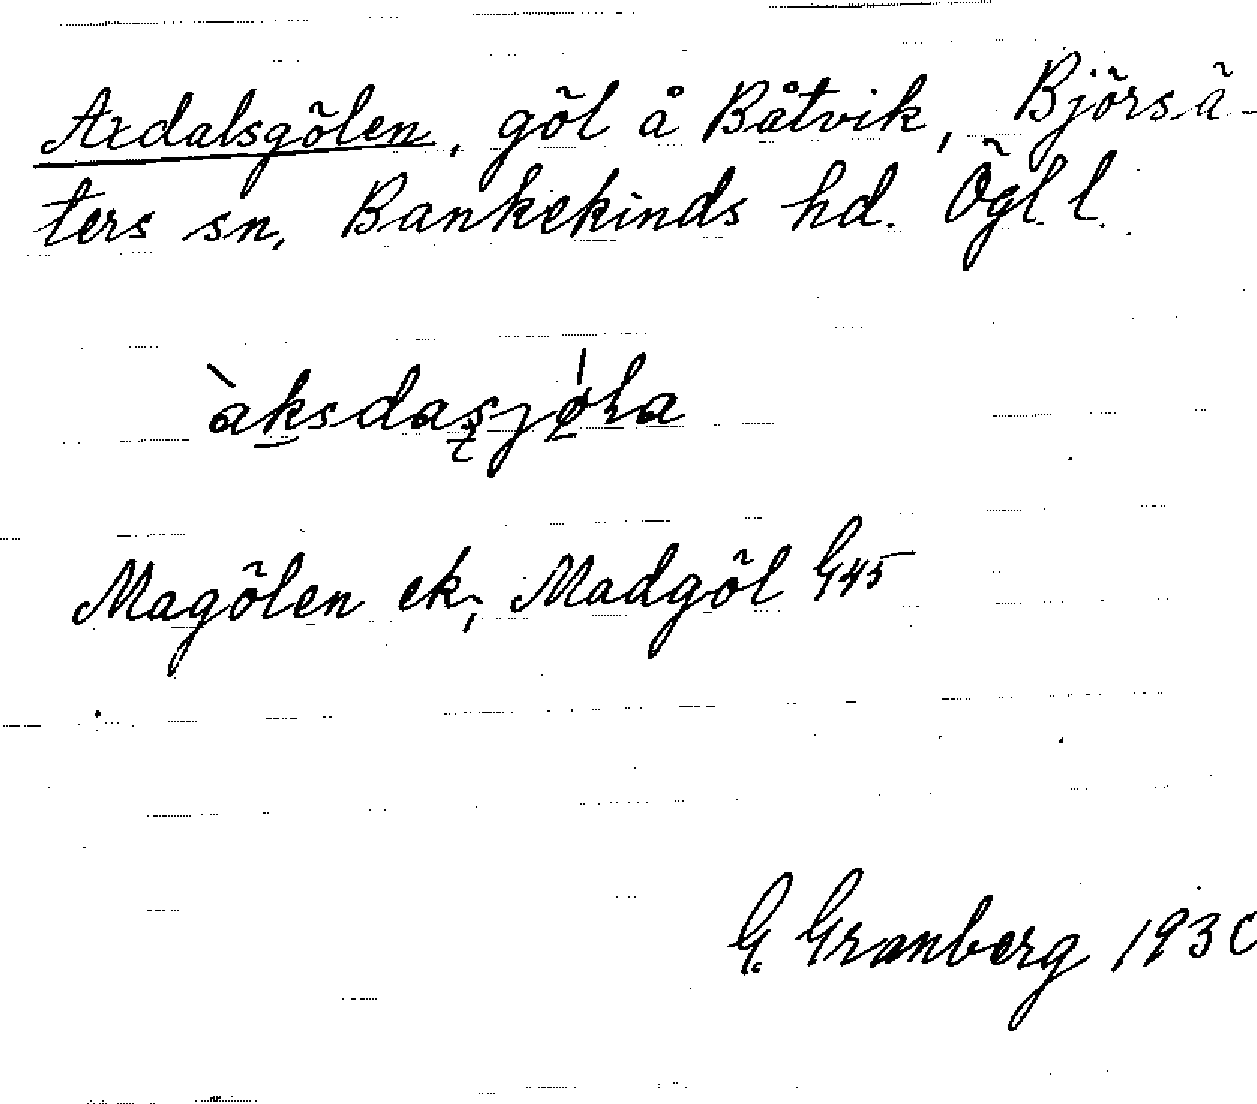 Axdalsgölen, göl å Båtvik, Björsä-
ters sn, Bankekinds hd. Ögl. l.
Magölen ek; Madgöl G45
G. Granberg 1930